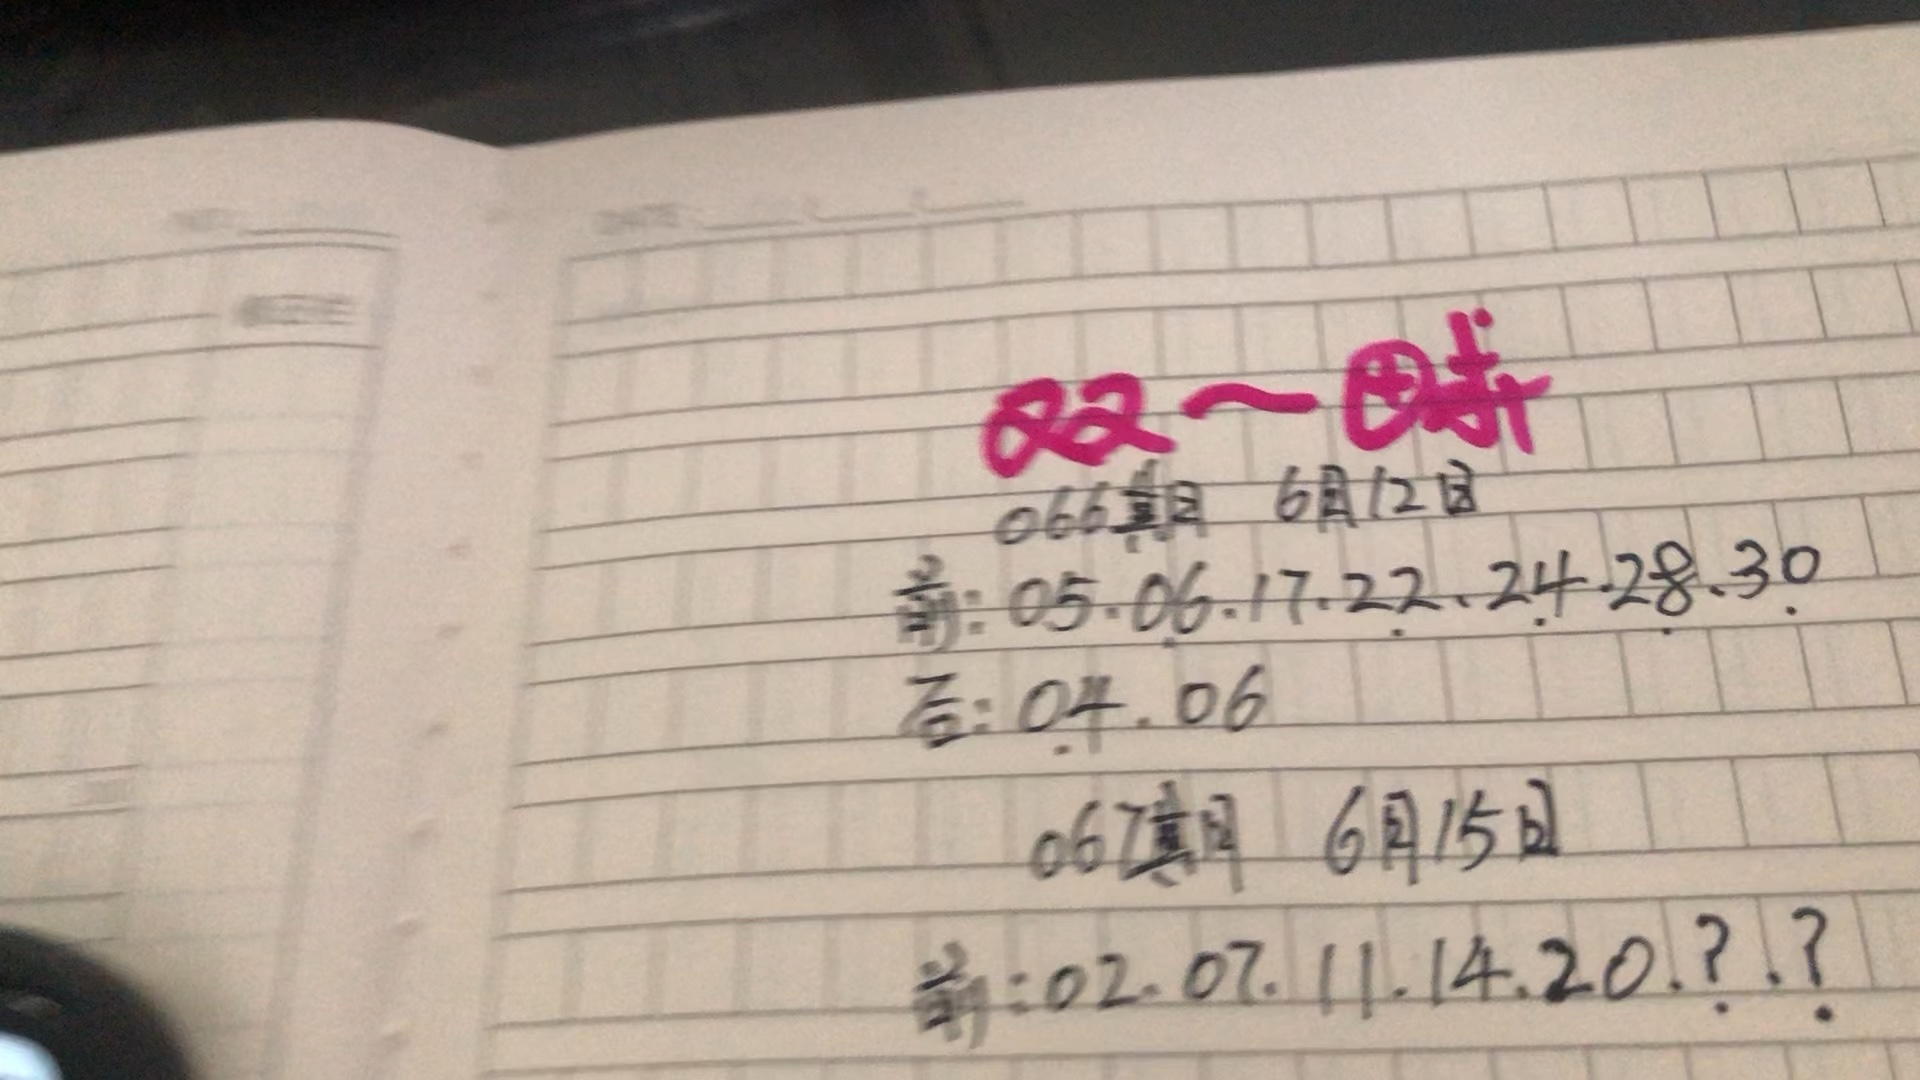 066期 6月12日
前: 05.06.17.22.24.28.30
后: 04.06
067期 6月15日
前: 02.07.11.14.20.?.?